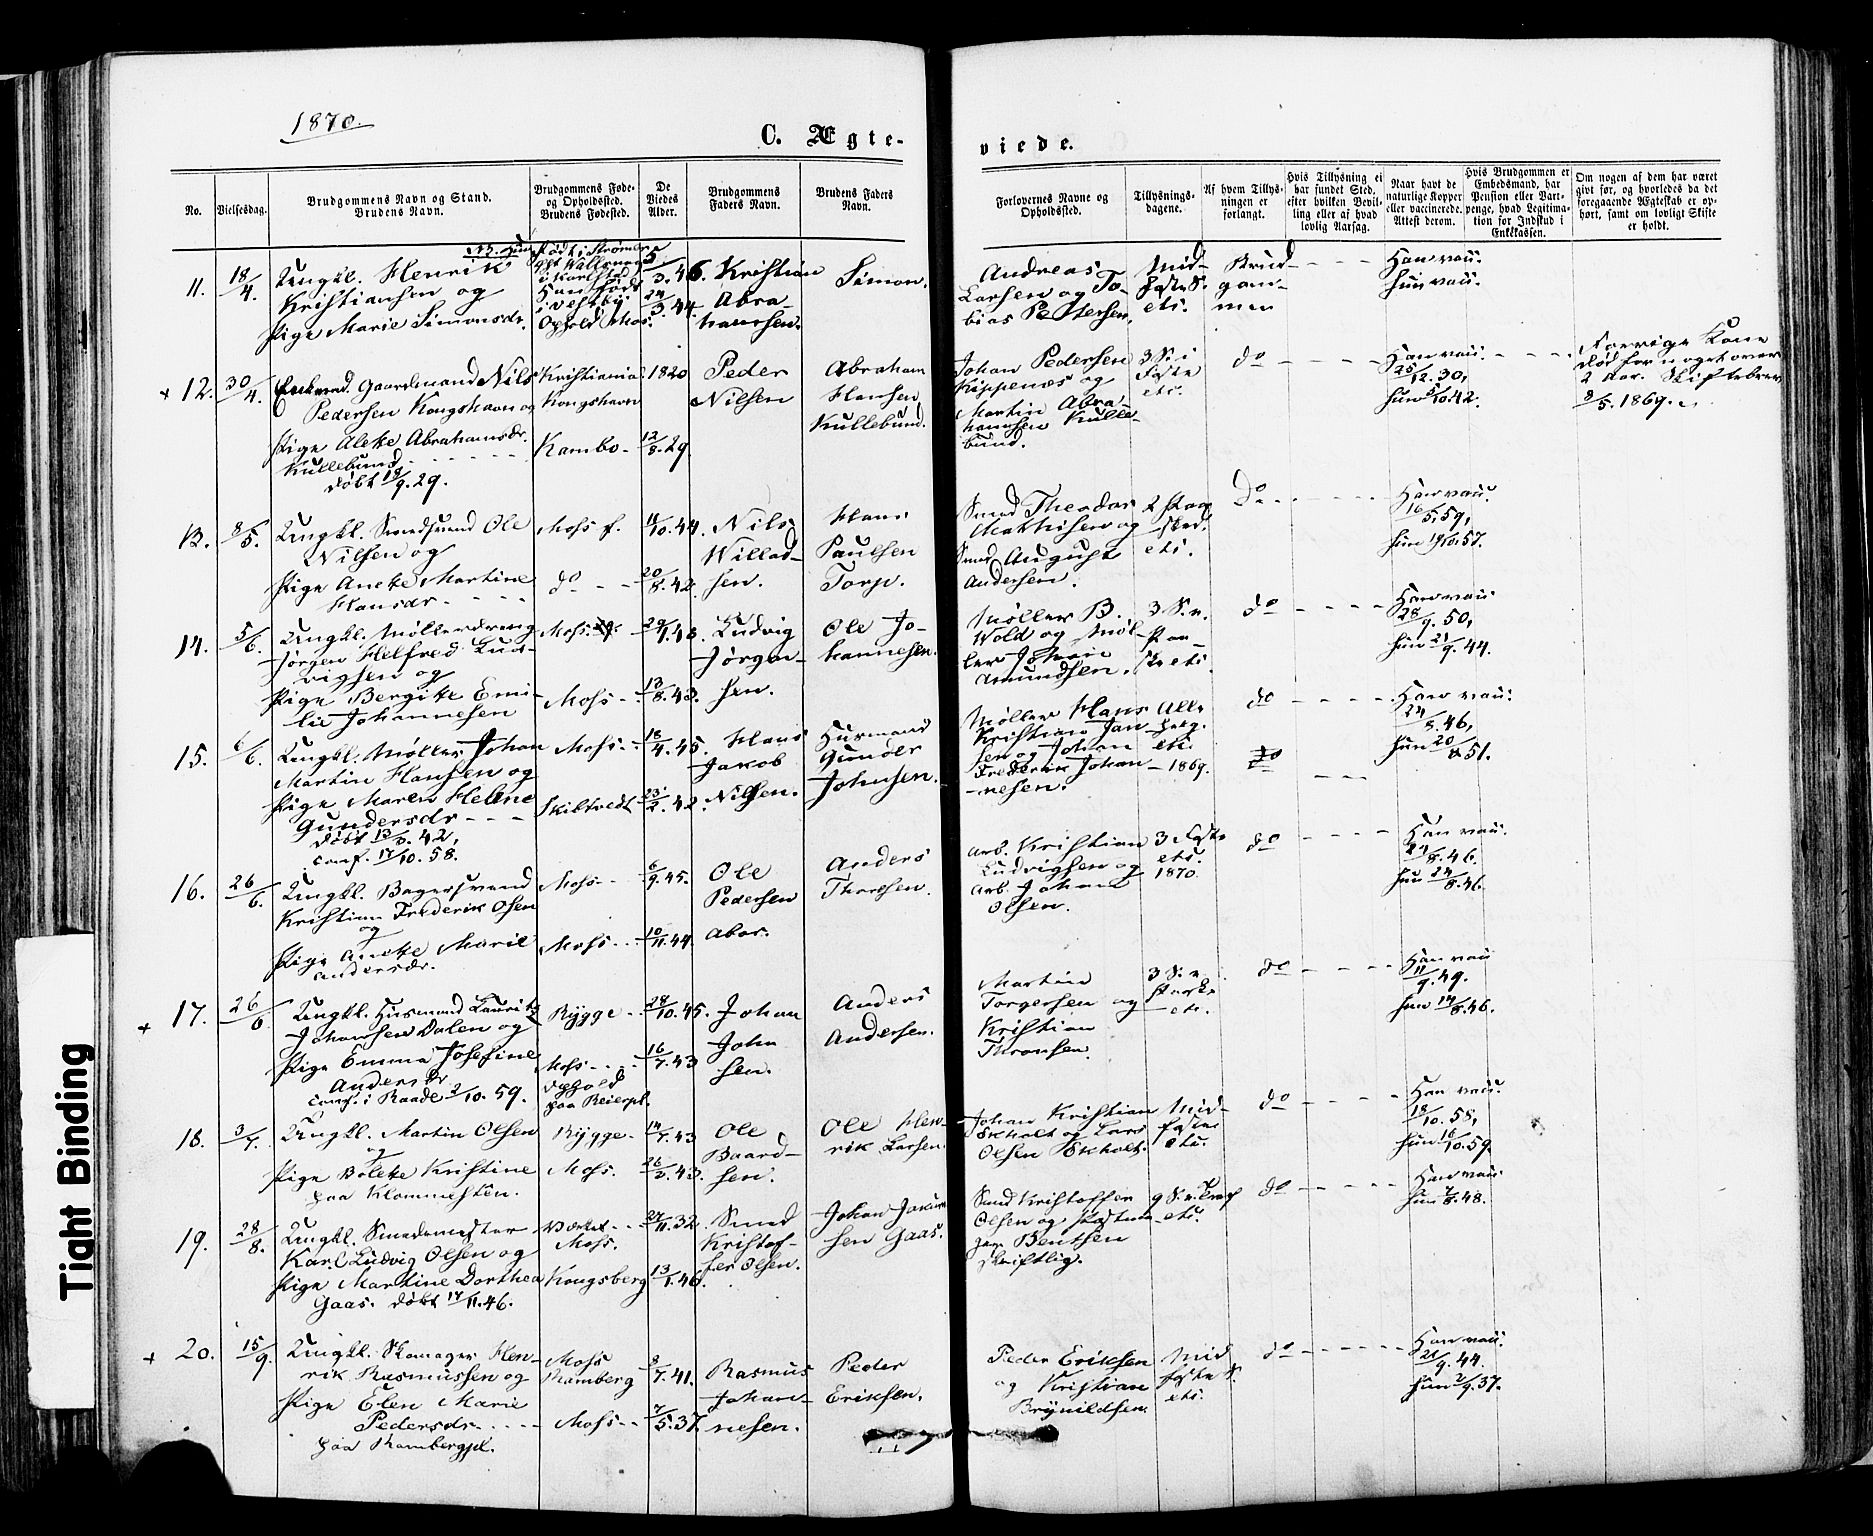 1870.
C. Ægte-
viede.
No.
Vielsesdag.
Brudgommens Navn og Stand.
Brudens Navn.
Brudgommens Føde-
og Opholdssted.
Brudens Fødested.
De
Viedes
Alder.
Brudgommens
Faders Navn.
Brudens Faders
Navn.
Forlovernes Navne og
Opholdssted.
Tillysnings-
dagene.
Af hvem Tillys-
ningen er
forlangt.
Hvis Tillysning ei
har fundet Sted,
efter hvilken Bevil-
ling eller af hvad
lovlig Aarsag.
Naar havt de
naturlige Kopper
eller vaccinerede.
Attest derom.
Hvis Brudgommen er
Embedsmand, har
Pension eller Vart-
penge, hvad Legitima-
tion for Indskud i
Enkekassen.
Om nogen af dem har været
givt før, og hvorledes da det
foregaaende Ægteskab er op-
hørt, samt om lovligt Skifte
er holdt.
11. 18/4. Ungkl. Henrik
Kristiansen og
Pige Marie Simonsdr.
Ophold Moss.
24/3.44.
Kristian
Abra-
hamsen.
Simon.
Andreas
Larsen og To-
bias Pettersen.
Mid-
faste S.
etc.
Brud-
gom-
men
Han vacc.
hun vacc.
+ 12. 30/4. Enkemd. Gaardmand Nils
Pedersen Kongshavn og
Pige Aleke Abrahamsdr.
Kullebund
døbt 18/9.29.
Kristiania
Kongshavn
Kambo
1820
12/8.29
Peder
Nilsen
Abraham
Hansen
Kullebund.
Johan Pedersen
Kippenæs og
Martin Abra-
hamsen Kulle-
bund.
3 S. i
Faste
etc.
do
Han vacc.
25/12.30,
hun 5/10.42.
Forrige Kone
død for noget over
2 Aar. Skiftebrev
8/5.1869.
13. 8/5. Ungkl. Smedsvend Ole
Nilsen og
Pige Aneke Martine
Hansdr
Moss f.
do
11/10.44.
20/8.42.
Nils
Willad-
sen.
Hans
Paulsen
Torp.
Smed Theodor
Mathisen og
Smed August
Andersen.
2 Paa-
sked.
etc.
Do
Han vacc.
16/5.59,
hun 19/10.57.
14. 5/6. Ungkl. Møllerdreng
Jørgen Helfred Lud-
vigsen og
Pige Bergite Emi-
lie Johannesen
Moss
Moss
29/1.48.
13/8.43.
Ludvig
Jørgen-
sen.
Ole Jo-
hannesen.
Møller B.
Wold og Møl-
ler Johan
Amundsen.
3 S. e.
Paa-
ske etc.
do
Han vacc.
28/9.50,
hun 21/9.44.
15. 6/6. Ungkl. Møller Johan
Martin Hansen og
Pige Maren Helene
Gundersdr
døbt 13/3.42,
conf. 17/10.58.
Moss
Skibtvedt
18/4.45.
23/2.42.
Hans
Jakob
Nilsen.
Husmand
Gunder
Johnsen.
Møller Hans
Kristian Jan-
sen og Johan
Frederik Johan-
nesen.
Alle
helg.
etc.
1869.
do
Han vacc.
24/8.46,
16. 26/6. Ungkl. Bagersvend
Kristian Frederik Olsen
og
Pige Aneke Marie
Andersdr.
Moss
Moss
6/9.45.
10/11.44.
Ole
Pedersen
Abor.
Anders
Thorsen.
Arb. Kristian
Ludvigsen og
Arb. Johan
Olsen.
3 Faste
etc.
1870.
do
Han vacc.
24/8.46.
hun 24/8.46.
+ 17. 26/6 Ungkl. Husmand Lauritz
Johansen Dalen og
Pige Emma Josefine
Andersdr
conf. i Raade 2/10.59.
Rygge
Moss
Ophold
paa Reierpl.
28/10.45.
16/7.43
Johan
John
sen.
Anders
Andersen.
Martin
Torgersen og
Kristian
Thronsen.
3 S. e.
Paaske
etc.
do
Han vacc
11/9.49.
hun 14/8.46.
18. 3/7. Ungkl. Martin Olsen
og
Pige Bolette Kristine
paa Klommesten.
Rygge
Moss.
14/7.43
26/3.43.
Ole
Baard-
sen.
Ole Hen-
rik Larsen.
Johan Kristian
Ekholt og Lars
Olsen Ekholt.
Mid-
faste
etc.
do
Han vacc.
18/10.58,
hun 16/10.59.
19. 28/8. Ungkl. Smedemester
Karl Ludvig Olsen og
Pige Martine Dorthea
Gaas. døbt 17/11.46.
Værket
Moss.
Kongsberg
27/11.32.
13/1.46.
Smed
Kristof-
fer Olsen.
Johan
sen Gaas.
Smed Kristoffer
Olsen og
Bentsen
skriftlig.
9 S. e.
etc.
do
Han vacc
hun 7/8.48.
+ 20. 15/9. Ungkl. Skomager Hen-
rik Rasmussen og
Pige Elen Marie
Pedersdr.
paa Rambergpl.
Moss
Ramberg
Moss
8/7.41.
7/5.37.
Rasmus
Johan-
nesen.
Peder
Eriksen.
Peder Eriksen
og Kristian
Brynildsen.
Mid
faste S.
etc.
do
Han vacc.
21/9.44.
hun 2/9.37.
Tight Binding